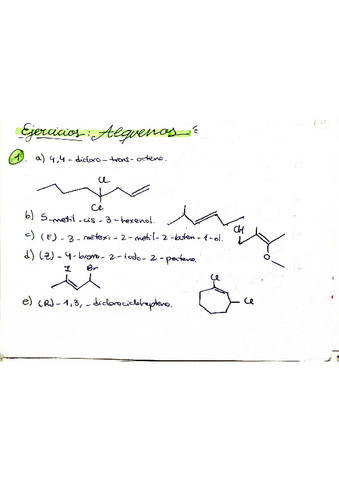 Ejercicios: Alquenos
1. a) 4,4-dicloro-trans-octeno.
Cl
Cl
b) 5-metil-cis-3-hexenol.
c) (E)-3-metoxi-2-metil-2-buten-1-ol.
OH
O
d) (Z)-4-bromo-2-iodo-2-penteno.
I Br
Cl
Cl
e) (R)-1,3,-diclorociclohepteno.